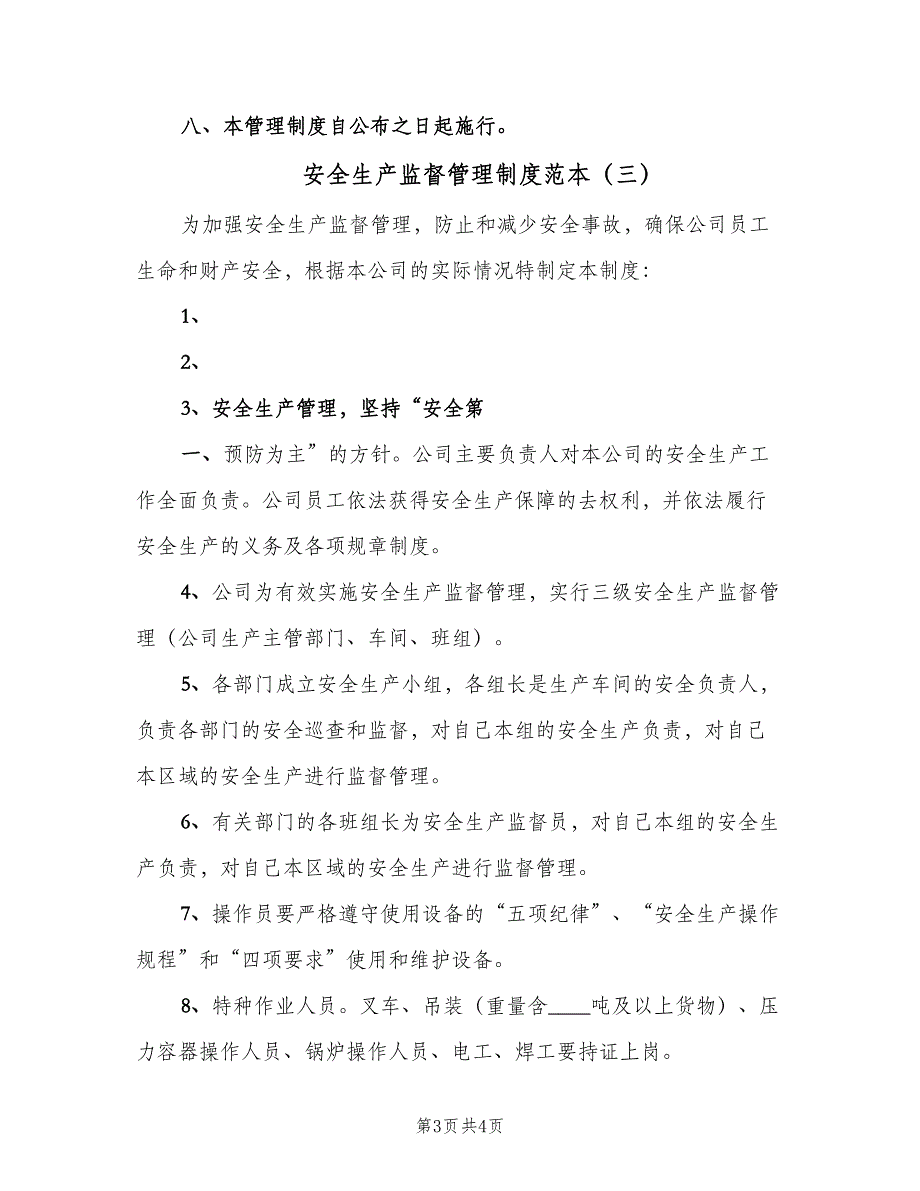 八、本管理制度自公布之日起施行。
安全生产监督管理制度范本（三）
为加强安全生产监督管理，防止和减少安全事故，确保公司员工
生命和财产安全，根据本公司的实际情况特制定本制度：
1、
2、
3、安全生产管理，坚持“安全第
一、预防为主”的方针。公司主要负责人对本公司的安全生产工
作全面负责。公司员工依法获得安全生产保障的去权利，并依法履行
安全生产的义务及各项规章制度。
4、公司为有效实施安全生产监督管理，实行三级安全生产监督管
理（公司生产主管部门、车间、班组）。
5、各部门成立安全生产小组，各组长是生产车间的安全负责人，
负责各部门的安全巡查和监督，对自己本组的安全生产负责，对自己
本区域的安全生产进行监督管理。
6、有关部门的各班组长为安全生产监督员，对自己本组的安全生
产负责，对自己本区域的安全生产进行监督管理。
7、操作员要严格遵守使用设备的“五项纪律”、“安全生产操作
规程”和“四项要求”使用和维护设备。
8、特种作业人员。叉车、吊装（重量含____吨及以上货物）、压
力容器操作人员、锅炉操作人员、电工、焊工要持证上岗。
第3页共4页